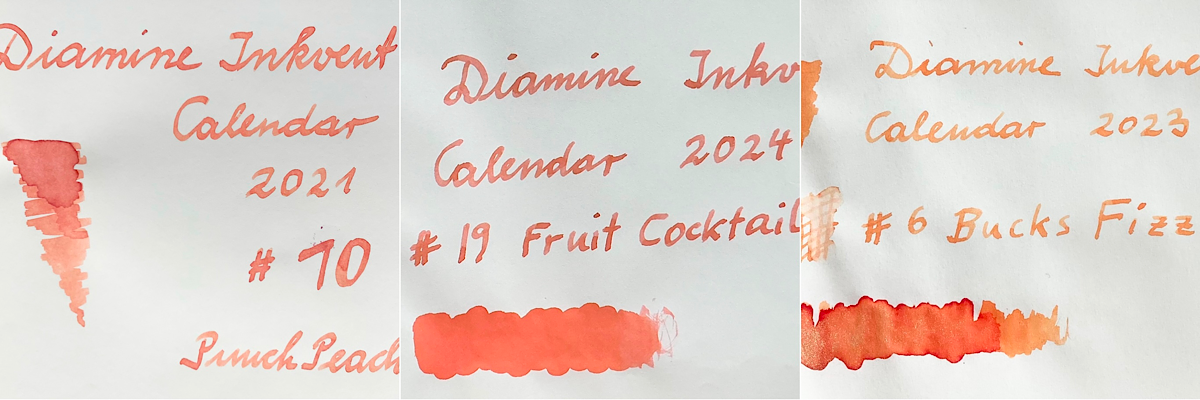 Diamine Inkvent
Calendar
2021
# 10
Punch Peach
Diamine Inkv
Calendar 2024
# 19 Fruit Cocktail
Diamine Inkve
Calendar 2023
# 6 Bucks Fizz